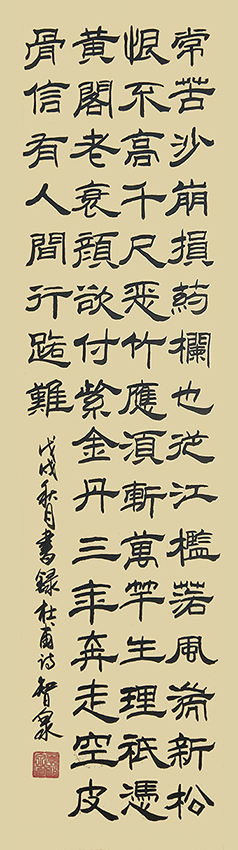 常苦沙崩損葯欄也從江檻落風湍新松
恨不高千尺惡竹應須斬萬竿生理祇憑
黃閣老衰顏欲付紫金丹三年奔走空皮
骨信有人間行路難
戊戌秋月書録杜甫诗智泉